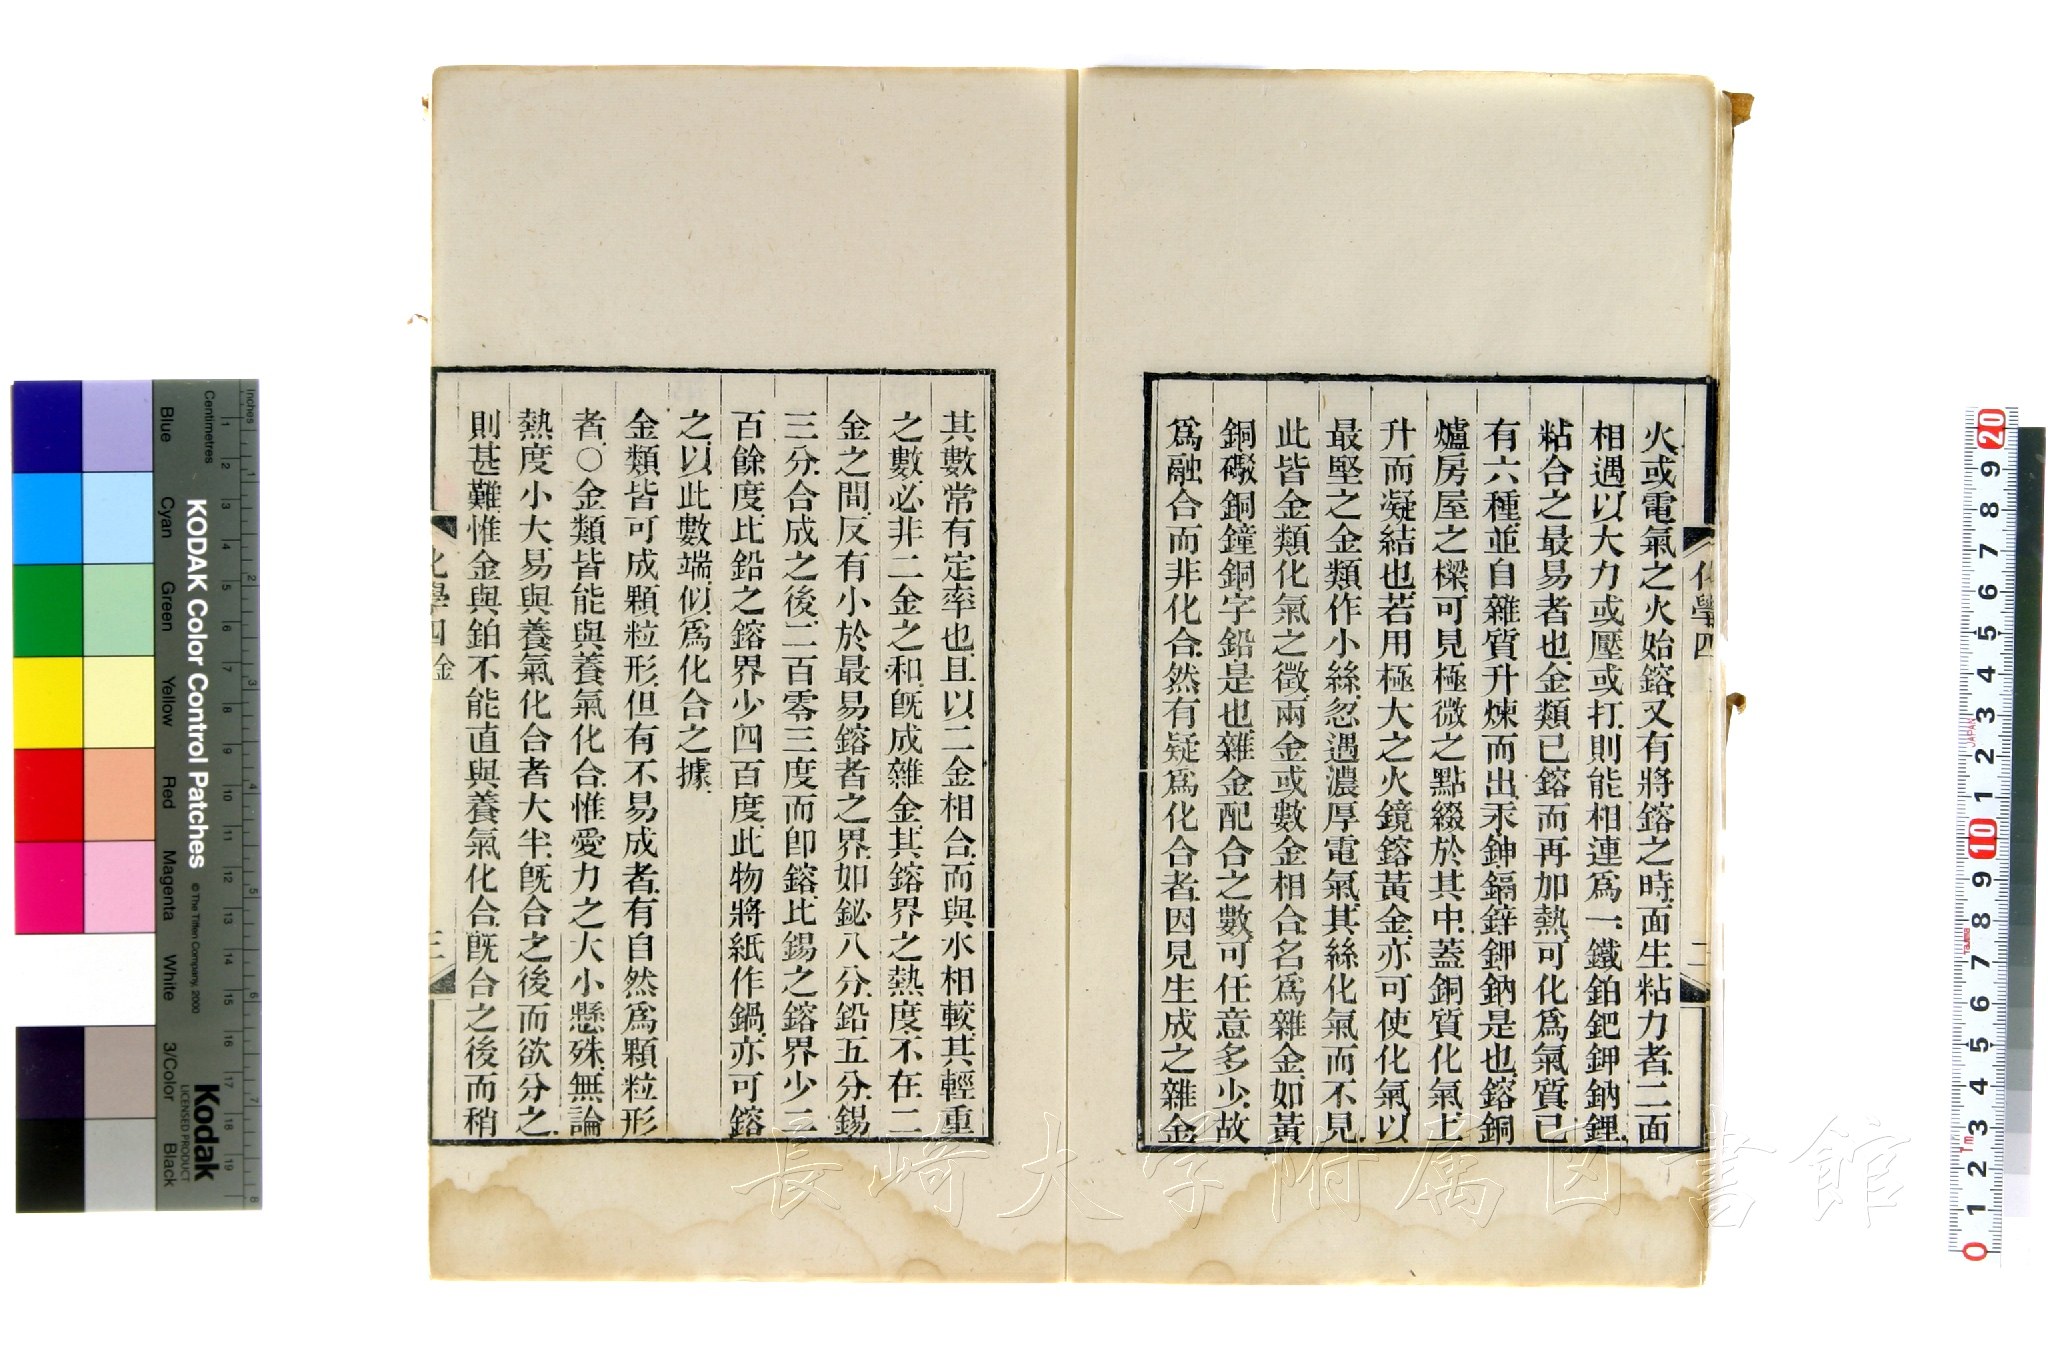 化學四
二
火或電氣之火始鎔又有將鎔之時面生粘力者二面
相遇以大力或壓或打則能相連爲一鐵鉑鈀鉀鈉鋰
粘合之最易者也金類已鎔而再加熱可化爲氣質已
有六種並自雜質升煉而出汞鉮鎘鋅鉀鈉是也鎔銅
爐房屋之樑可見極微之點綴於其中蓋銅質化氣上
升而凝結也若用極大之火鏡鎔黃金亦可使化氣以
最堅之金類作小絲忽遇濃厚電氣其絲化氣而不見
此皆金類化氣之徵兩金或數金相合名爲雜金如黃
銅礮銅鐘銅字鉛是也雜金配合之數可任意多少故
爲融合而非化合然有疑爲化合者因見生成之雜金
其數常有定率也且以二金相合而與水相較其輕重
之數必非二金之和旣成雜金其鎔界之熱度不在二
金之間反有小於最易鎔者之界如鉍八分鉛五分錫
三分合成之後二百零三度而卽鎔比錫之鎔界少二
百餘度比鉛之鎔界少四百度此物將紙作鍋亦可鎔
之以此數端似爲化合之據
金類皆可成顆粒形但有不易成者有自然爲顆粒形
者○金類皆能與養氣化合惟愛力之大小懸殊無論
熱度小大易與養氣化合者大半旣合之後而欲分之
則甚難惟金與鉑不能直與養氣化合旣合之後而稍
化學四 金
三
長崎大学附属図書館
Inches
Centimetres
KODAK Color Control Patches
© The Tiffen Company, 2000
Kodak
LICENSED PRODUCT
Blue
Cyan
Green
Yellow
Red
Magenta
White
3/Color
Black
1 2 3 4 5 6 7 8
1 2 3 4 5 6 7 8 9 10 11 12 13 14 15 16 17 18 19
20
9
8
7
6
5
4
3
2
1
10
9
8
7
6
5
4
3
2
1
0
JAPAN
1m